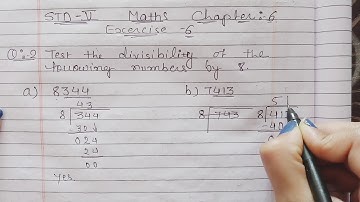 STD-V Maths Chapter:6
Exercise-6
Q:-2 Test the divisibility of the
following numbers by 8.
a) 8344
43
8 344
-32↓
024
24
00
Yes.
b) 7413
8 743
51
8 413
-40
0